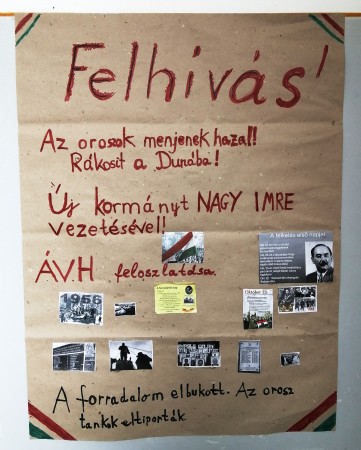 Felhívás!
Az oroszok menjenek haza!!
Rákosit a Dunába!
Új kormányt NAGY IMRE
vezetésével!
ÁVH feloszlatása.
A felkelés első napjai
1956
Október 23.
A forradalom elbukott. Az orosz
tankok eltiporták